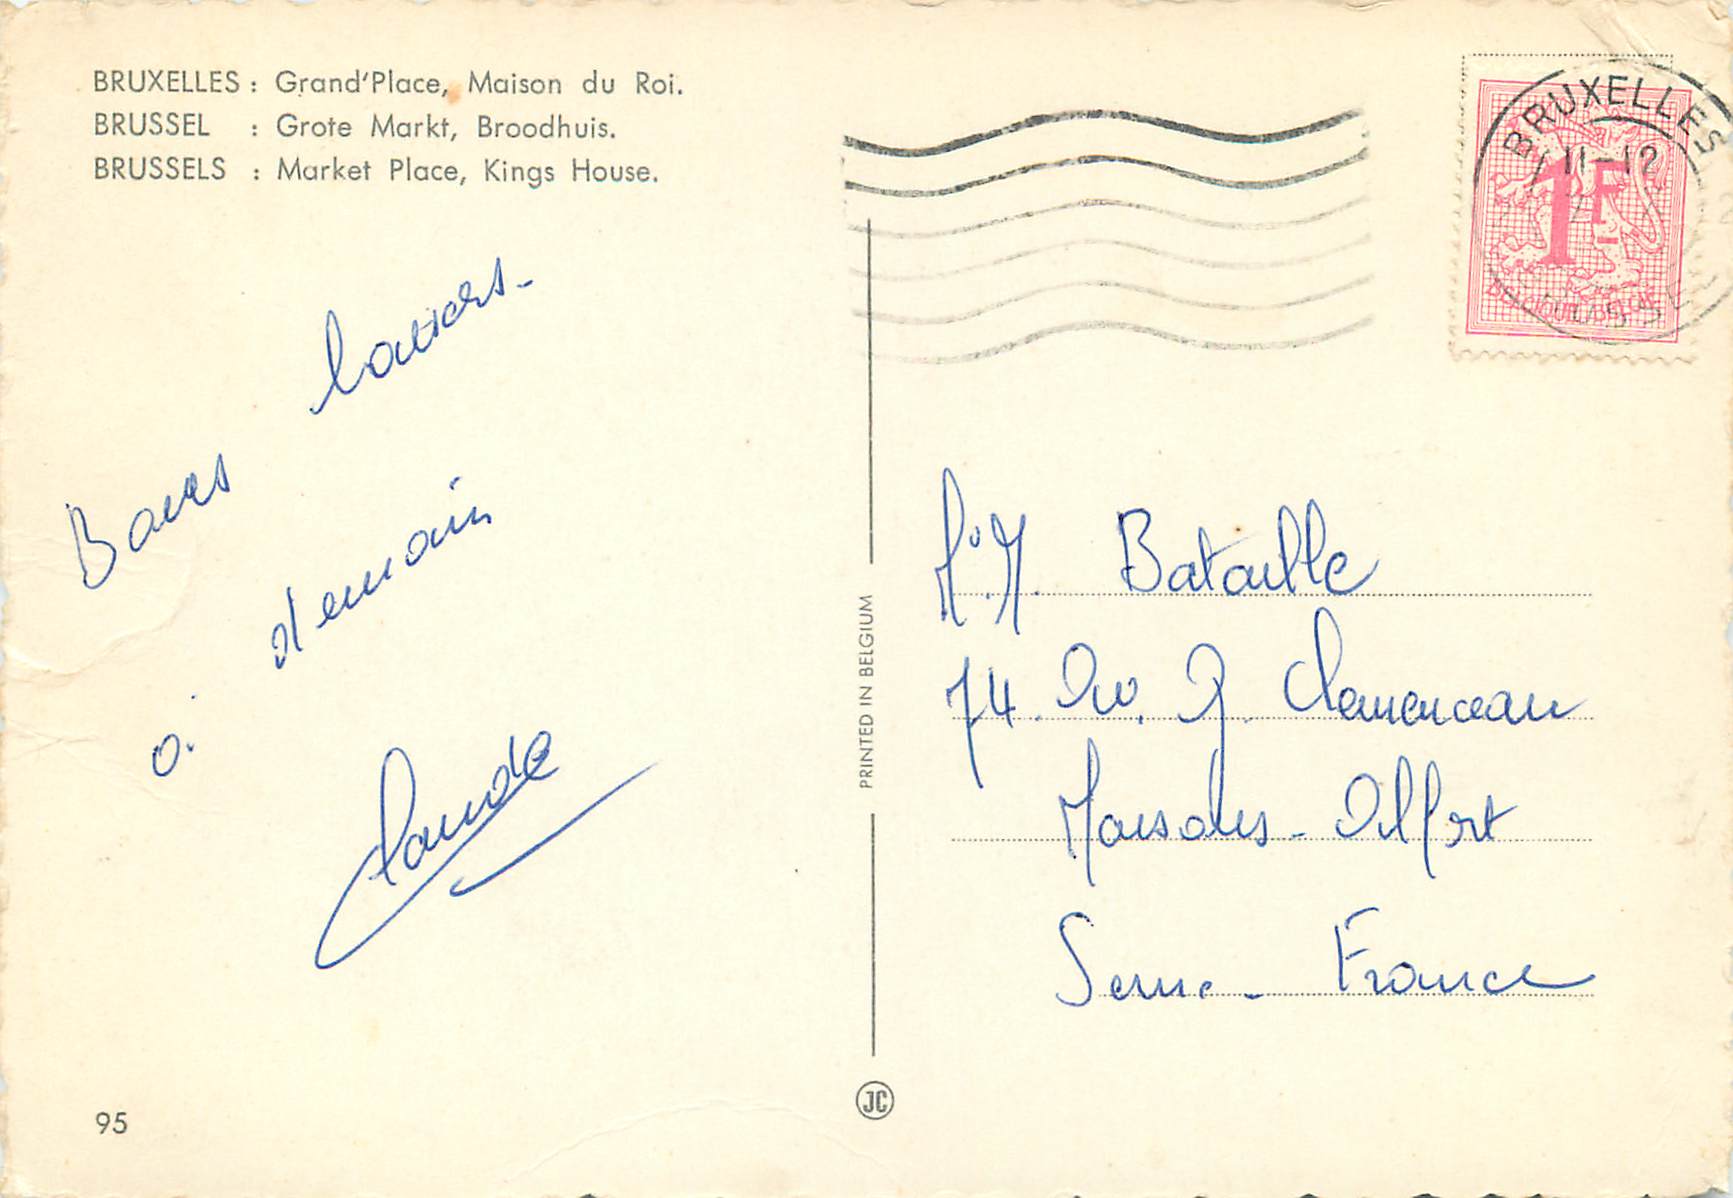 BRUXELLES : Grand'Place, Maison du Roi.
BRUSSEL : Grote Markt, Broodhuis.
BRUSSELS : Market Place, Kings House.
Bons baisers -
à demain
Claude
95
PRINTED IN BELGIUM
JC
BRUXELLES
11-12
1F
BELGIQUE-BELGIE
M. Bataille
74. Av. G. Clemenceau
Maisons-Alfort
Seine - France